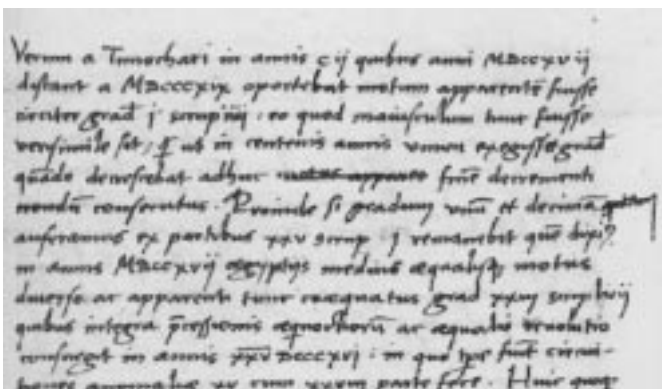 Verum a Timochari in annis cij quibus anni MDCCXVII
distant a MDCCCXIX oportebat motum apparentē fuisse
circiter grad j scrup iiii : eo quod maiusculum tunc fuisse
verisimile sit, ut in centenis annis unum exegisse grad
quādo decrescebat adhuc finē decrementi
nondū consecutus . Proinde si gradum unū et decimā
auferamus ex partibus xxv scrup j remanebit quē dixi
in annis MDCCXVII ægyptijs medius æqualisq motus
diverso ac apparenti tunc coæquatus grad xxiii scrup
quibus integra præcessionis æquinoctiorū ac æqualis revolutio
consurgit in annis xxv DCCCXVI : in quo tpe fiūt circui-
tiones anomaliæ xv cum xxviii parte fere . Huic quoq